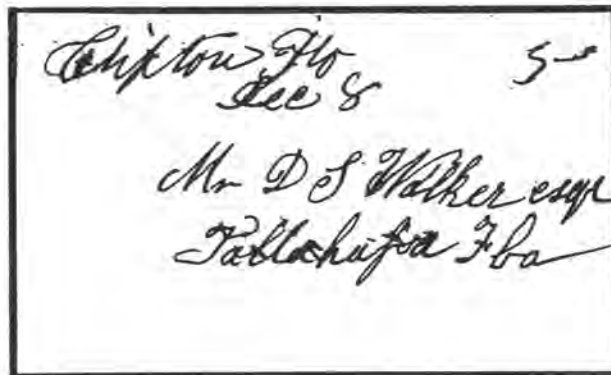 Clifton Flo 5
Dec 8
Mr D S Walker esqr
Tallahassa Fla